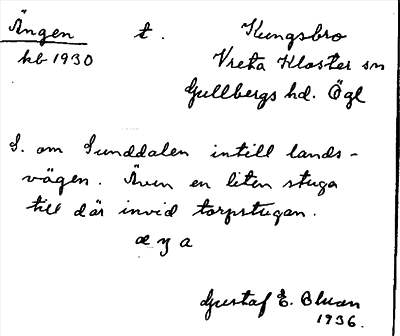 Ängen t. Kungsbro
kb 1930 Vreta Kloster sn
Gullbergs hd. Ögl
S. om Sunddalen intill lands-
vägen. Även en liten stuga
till där invid torpstugan.
æ y a
Gustaf E. Bluan
1936.